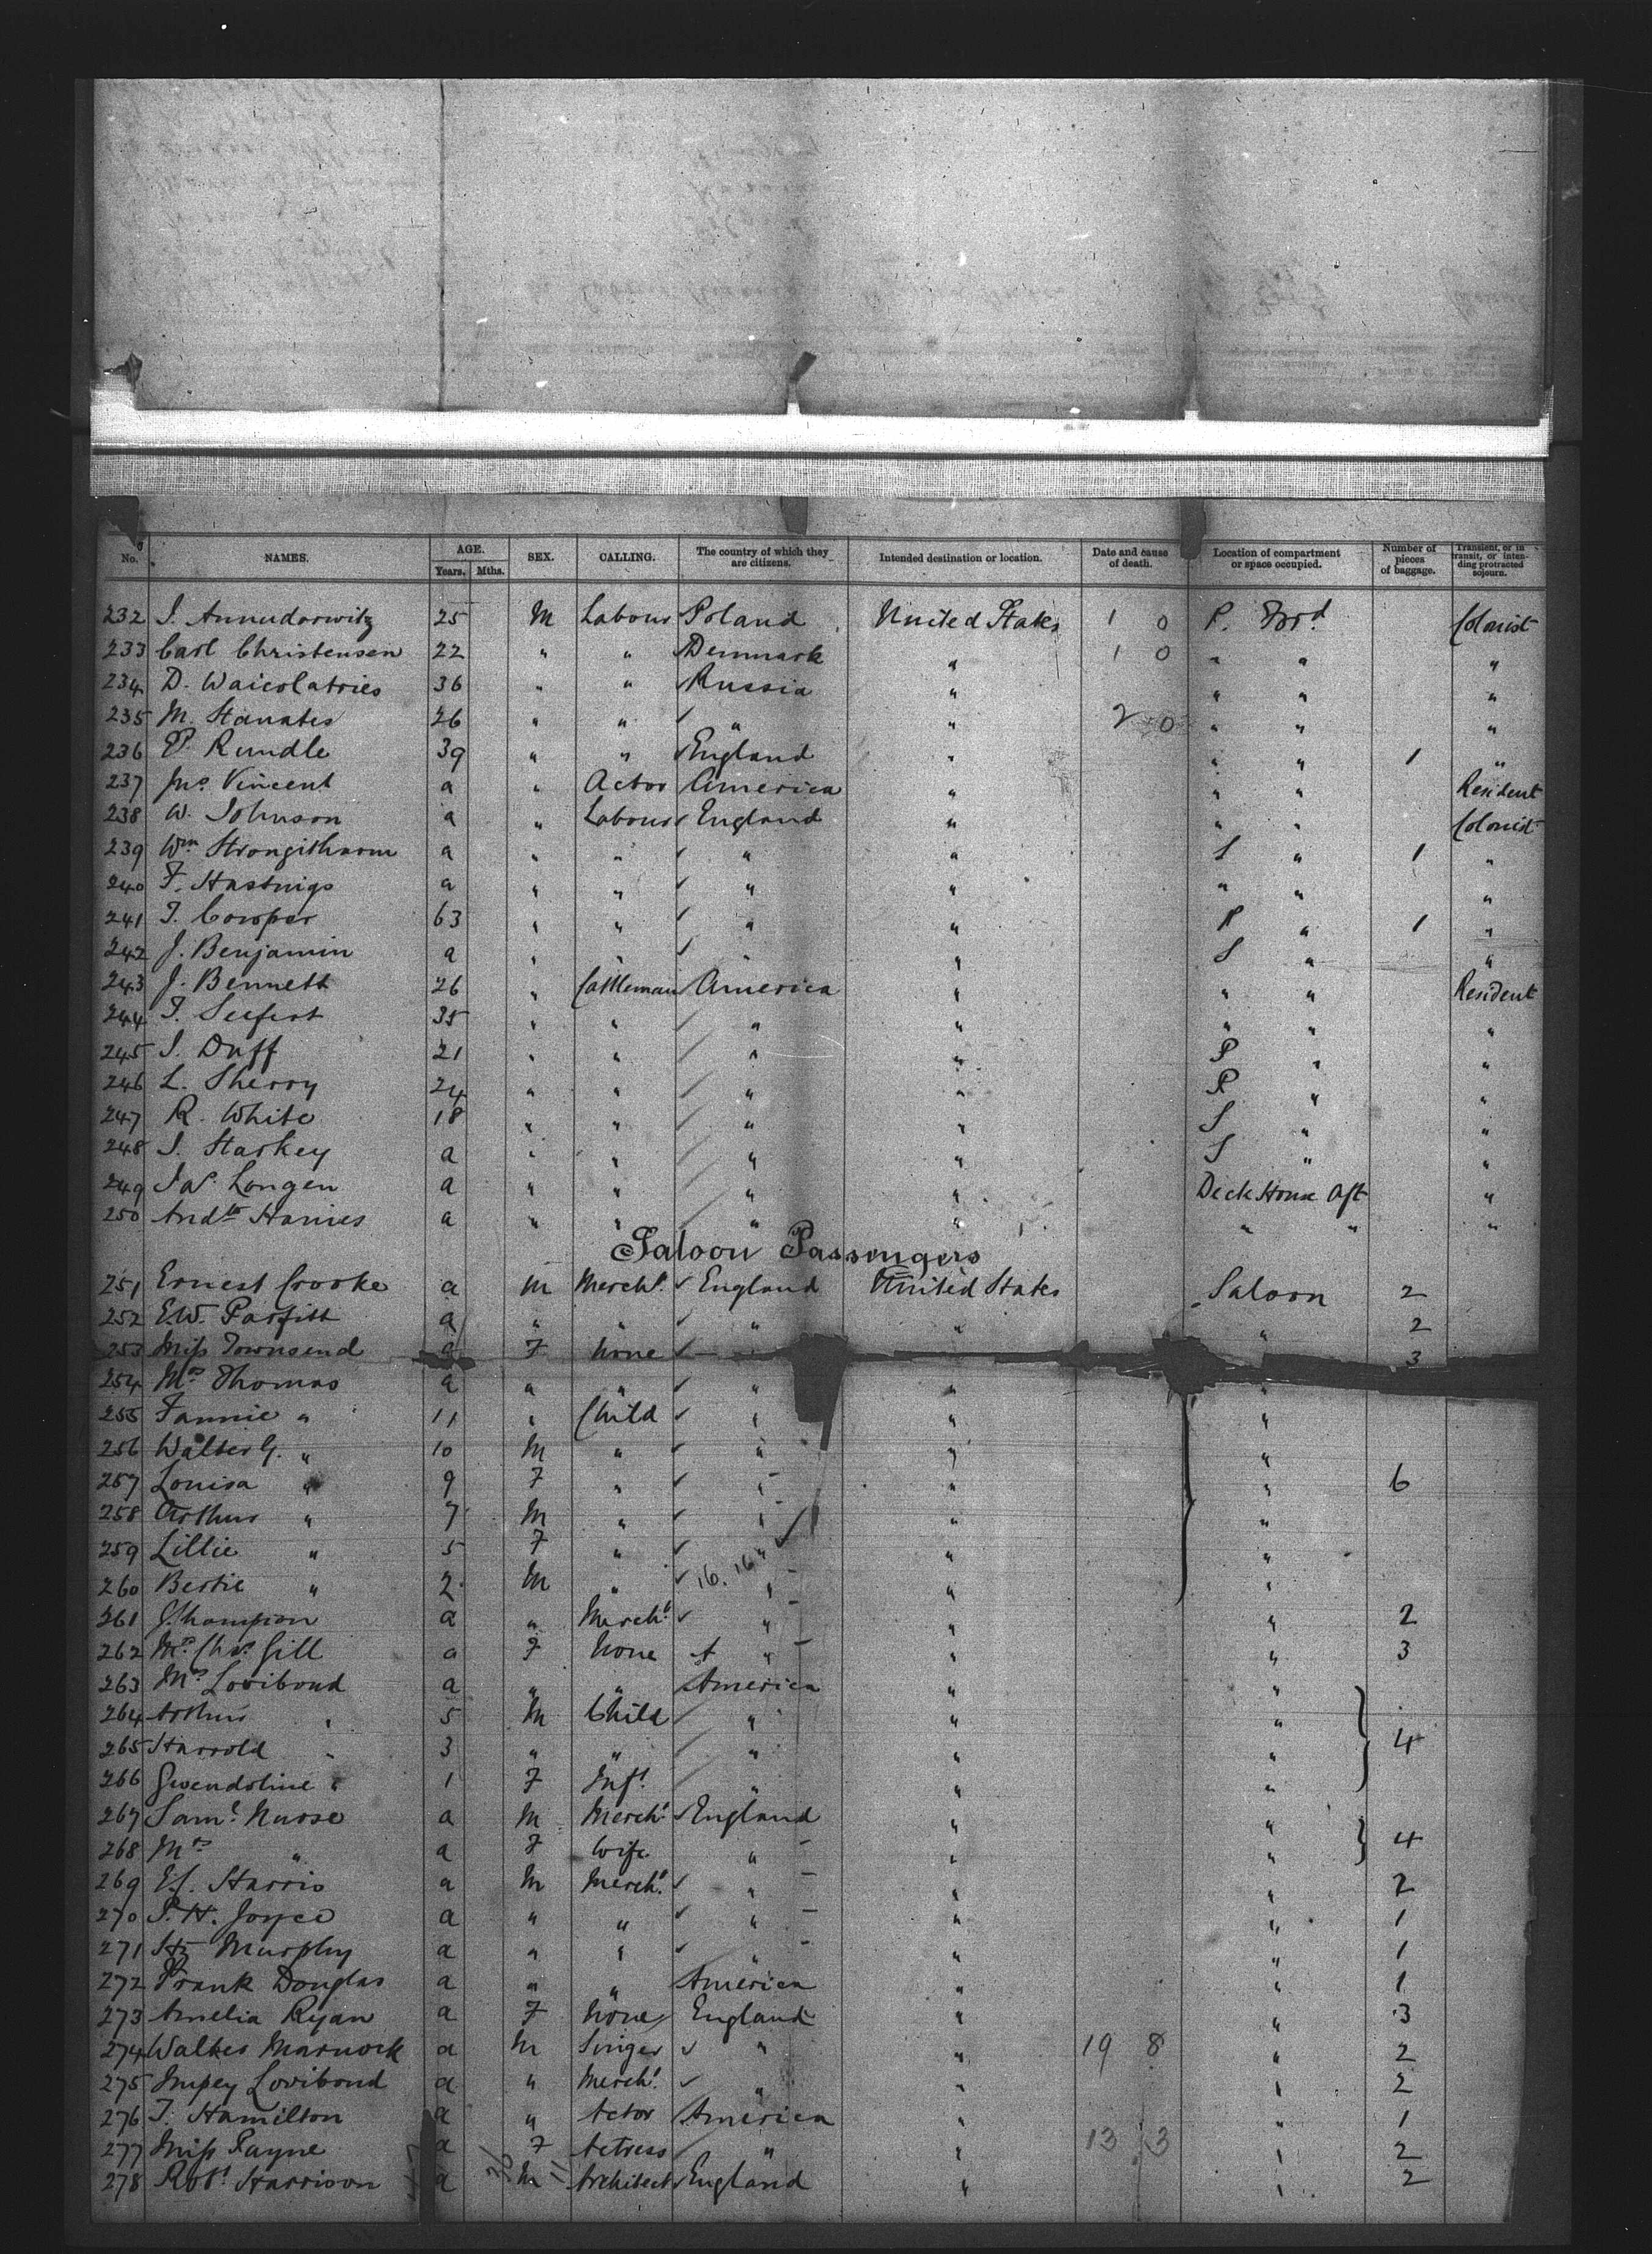 No. NAMES. AGE. Years. Mths. SEX. CALLING. The country of which they are citizens. Intended destination or location. Date and cause of death. Location of compartment or space occupied. Number of pieces of baggage. Transient, or in transit, or intending protracted sojourn.
232 25 M Labour Poland United States 1 0 P. Ford Colonist
233 Carl Christensen 22 " " Denmark " 1 0 " " "
234 D. Waicolatries 36 " " Russia " " " "
235 M. Stanates 26 " " " " 2 0 " " "
236 P. Rundle 39 " " England " " " 1 "
237 Jno. Vincent a " Actor America " " " Resident
238 W. Johnson a " Labour England " " " Colonist
239 Wm Strongitharm a " " " " S " 1 "
240 F. Hastings a " " " " " " "
241 T. Cowper 63 " " " " P " 1 "
242 J. Benjamin a " " " " S " "
243 J. Bennett 26 " Cattleman America " " " Resident
244 F. Seifert 35 " " " " " " "
245 J. Duff 21 " " " " P " "
246 L. Sherry 24 " " " " P " "
247 R. White 18 " " " " S " "
248 J. Starkey a " " " " S " "
249 Jas. Longen a " " " " Deck House Aft "
250 Andw Hanies a " " " " " " "
Saloon Passengers
251 Ernest Crooke a M Mercht. England United States Saloon 2
252 E.W. Parfitt a " " " " " 2
253 Miss Townsend a F None 3
254 Mrs Thomas a " " " " "
255 Fannie " 11 " Child " " "
256 Walter G. " 10 M " " " "
257 Louisa " 9 F " " " " 6
258 Arthur " 7 M " " " "
259 Lillie " 5 F " " " "
260 Bertie " 2 M " 16.16 " " "
261 a " Mercht. " " " 2
262 Mrs. Chs. Gill a F None " " " 3
263 Mrs. Lovibond a " " America " "
264 Arthur " 5 M Child " " "
265 Harrold " 3 " " " " " 4
266 Gwendoline " 1 F Inft. " " "
267 Saml. Nurse a M Mercht. England " "
268 Mrs " a F Wife " " " 4
269 E.J. Harris a M Mercht. " " " 2
270 P.H. Joyce a " " " " " 1
271 Hy Murphy a " " " " " 1
272 Frank Douglas a " " America " " 1
273 Amelia Ryan a F None England " " 3
274 Walter Marnock a M Singer " " 19 8 " 2
275 Impey Lovibond a " Mercht. " " " 2
276 T. Hamilton a " Actor America " " 1
277 Miss Payne a F Actress " " 13 3 " 2
278 Robt. Harrison a M Architect England " " 2